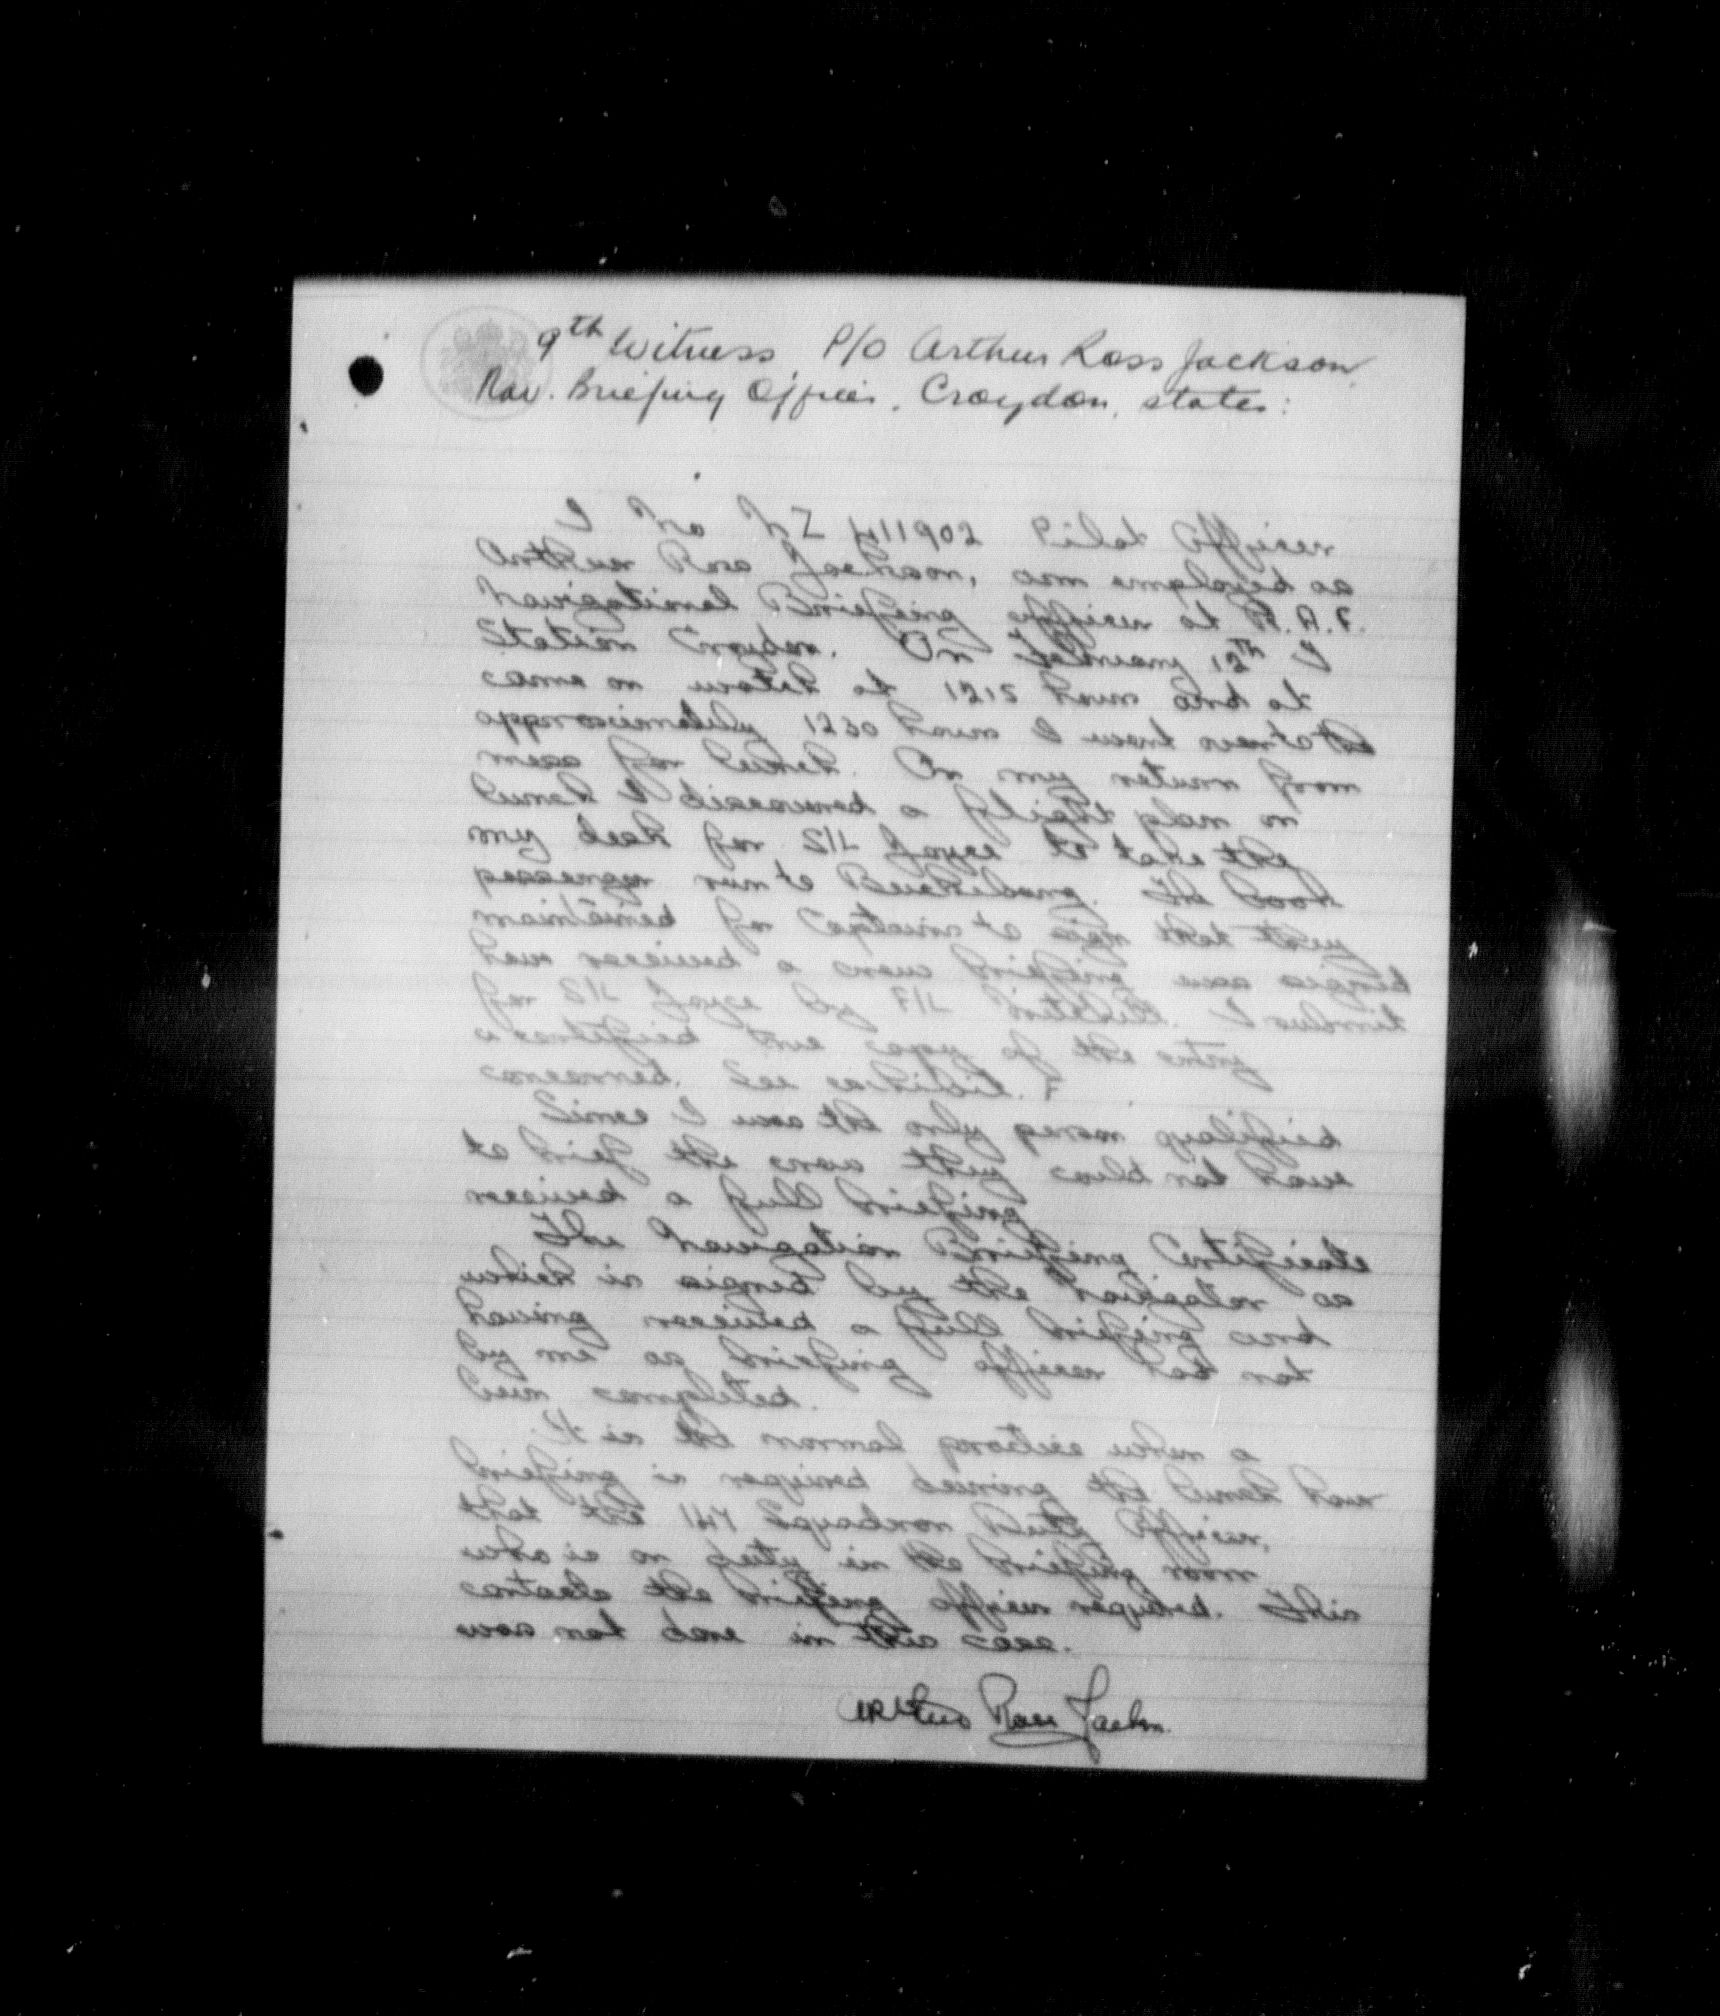 9th Witness P/O Arthur Ross Jackson
Nav. Briefing Officer, Croydon, states:
I No NZ 411902 Pilot Officer
Arthur Ross Jackson, am employed as
Navigational Briefing officer to R.A.F.
Station Croydon. On February 12th I
came on watch at 1215 hours and at
approximately 1230 hours I went over to the
mess for lunch. On my return from
lunch I discovered a flight plan on
my desk for S/L to take the
passenger run to Buckeburg. The book
maintained for Captains to sign that they
have received a nav briefing was signed
for S/L by F/L I
a certified true copy of the entry
concerned. See exhibit F
Since I was the only person qualified
to brief the crews they could not have
received a full briefing
The Navigation Briefing Certificate
which is signed by the Navigator as
having received a full briefing and
by me as briefing officer had not
been completed.
It is the normal practice when a
briefing is required during the lunch hour
that the 147 Squadron Duty Officer,
who is on duty in the briefing room
contacts the briefing officer required. This
was not done in this case.
Arthur Ross Jackson.